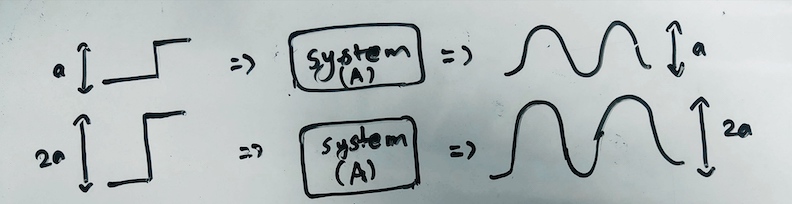 a => system (A) => a
2a => system (A) => 2a